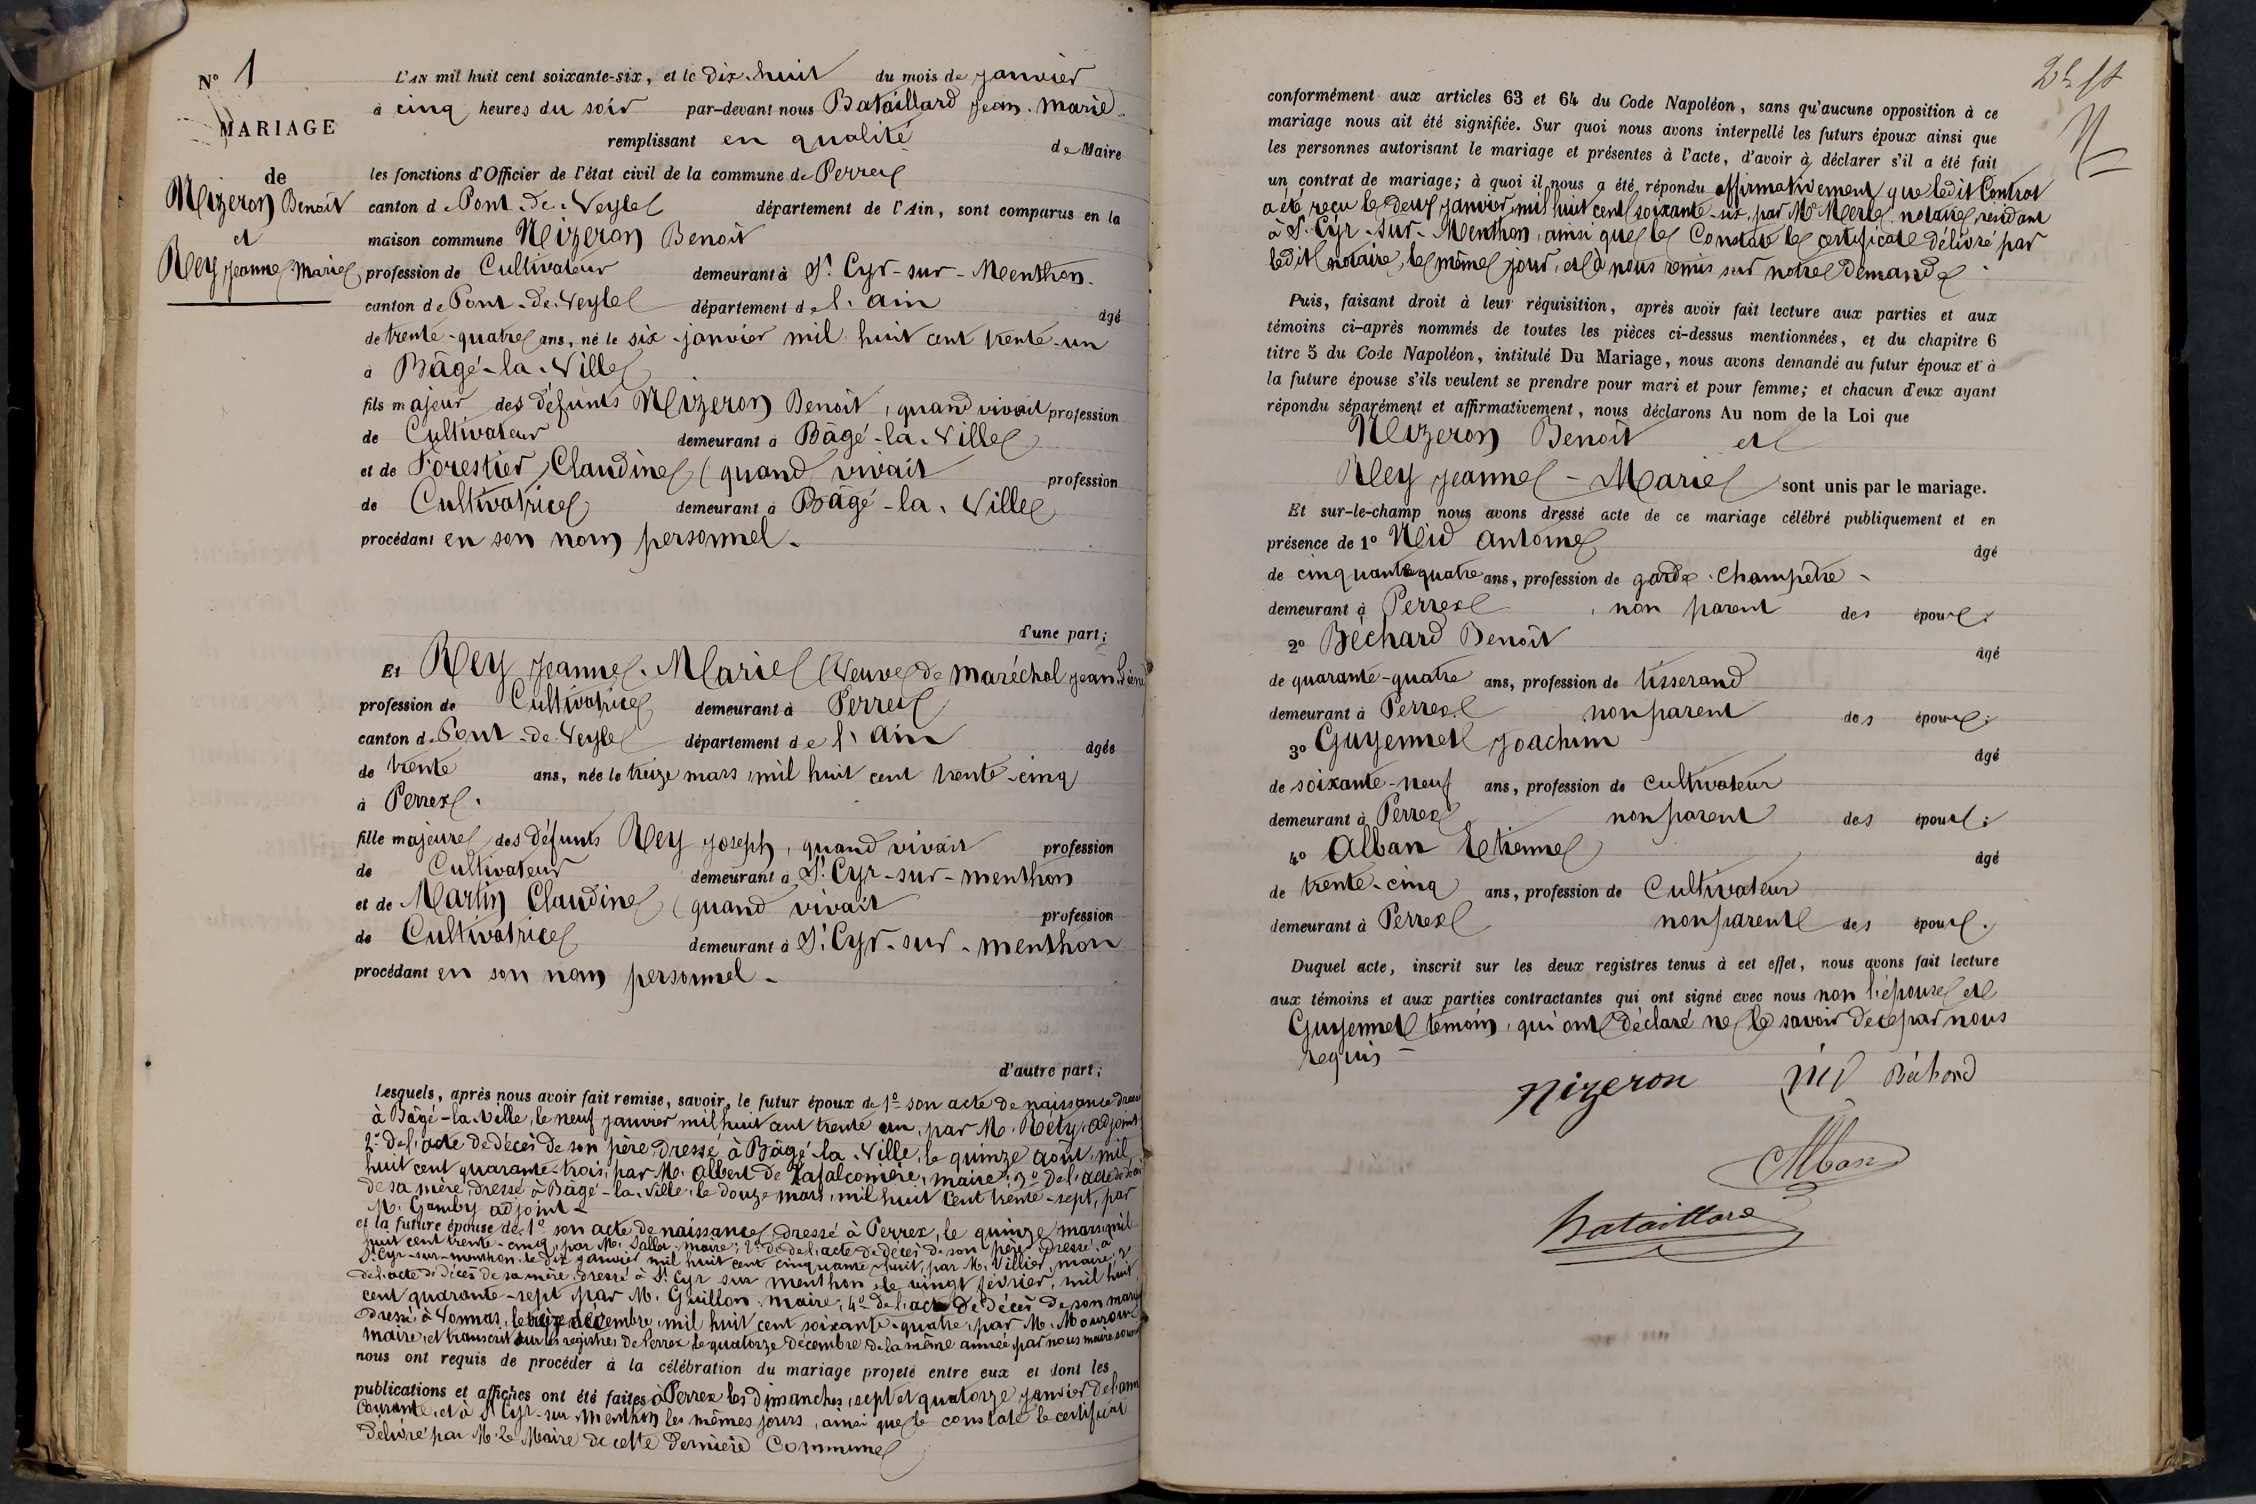 N° 1
MARIAGE
de
Nizeron Benoit
et
Rey Jeanne Marie
L'AN mil huit cent soixante-six, et le Dix-huit du mois de janvier
à cinq heures du soir par-devant nous Bataillard Jean-Marie
remplissant en qualité de Maire
les fonctions d'Officier de l'état civil de la commune de Perrex
canton de Pont-de-Veyle département de l'Ain, sont comparus en la
maison commune Nizeron Benoit
profession de Cultivateur demeurant à St Cyr-sur-Menthon
canton de Pont-de-Veyle département de l'ain âgé
de trente-quatre ans, né le six janvier mil huit cent trente-un
à Bâgé-la-Ville
fils majeur des défunts Nizeron Benoit, quand vivait profession
de Cultivateur demeurant à Bâgé-la-Ville
et de Forestier Claudine, quand vivait profession
de Cultivatrice demeurant à Bâgé-la-Ville
procédant en son nom personnel
d'une part;
Et Rey Jeanne-Marie, Veuve de Maréchal Jean
profession de Cultivatrice demeurant à Perrex
canton de Pont-de-Veyle département de l'ain âgée
de trente ans, née le treize mars, mil huit cent trente-cinq
à Perrex.
fille majeure des défunts Rey Joseph, quand vivait profession
de Cultivateur demeurant à St Cyr-sur-menthon
et de Martin Claudine, quand vivait profession
de Cultivatrice demeurant à St Cyr-sur-menthon
procédant en son nom personnel
d'autre part;
Lesquels, après nous avoir fait remise, savoir, le futur époux de 1° son acte de naissance dressé
à Bâgé-la-Ville, le neuf janvier mil huit cent trente un, par M. Réty, adjoint
2° de l'acte de décès de son père, dressé à Bâgé-la-Ville, le quinze août, mil
huit cent quarante-trois, par M. Albert de Lafalconnière, maire; 3° de l'acte de décès
de sa mère, dressé à Bâgé-la-Ville, le douze mars, mil huit cent trente-sept, par
M. Gamby adjoint
et la future épouse de 1° son acte de naissance, dressé à Perrex, le quinze mars, mil
huit cent trente-cinq, par M. maire; 2° de l'acte de décès de son père, dressé à
St Cyr-sur-menthon, le dix janvier, mil huit cent cinquante-huit, par M. Villier, maire; 3°
de l'acte de décès de sa mère, dressé à St Cyr sur menthon, le vingt février, mil huit
cent quarante-sept, par M. Guillon, maire; 4° de l'acte de décès de son mari
dressé à Vonnas, le décembre, mil huit cent soixante-quatre, par M.
maire, et transcrit sur les registres de Perrex le quatorze décembre de la même année, par nous maire
nous ont requis de procéder à la célébration du mariage projeté entre eux et dont les
publications et affiches ont été faites à Perrex les Dimanches, sept et quatorze janvier de l'année
courante, et à St Cyr-sur Menthon les mêmes jours, ainsi que le constate le certificat
délivré par M. le Maire de cette dernière Commune
conformément aux articles 63 et 64 du Code Napoléon, sans qu'aucune opposition à ce
mariage nous ait été signifiée. Sur quoi nous avons interpellé les futurs époux ainsi que
les personnes autorisant le mariage et présentes à l'acte, d'avoir à déclarer s'il a été fait
un contrat de mariage; à quoi il nous a été répondu affirmativement que ledit Contrat
a été reçu le deux janvier, mil huit cent soixante-six, par Me Merle, notaire, résidant
à St Cyr-sur-Menthon, ainsi que le Constate le certificat délivré par
ledit notaire, le même jour, et à nous remis sur notre demande.
Puis, faisant droit à leur réquisition, après avoir fait lecture aux parties et aux
témoins ci-après nommés de toutes les pièces ci-dessus mentionnées, et du chapitre 6
titre 5 du Code Napoléon, intitulé Du Mariage, nous avons demandé au futur époux et à
la future épouse s'ils veulent se prendre pour mari et pour femme; et chacun d'eux ayant
répondu séparément et affirmativement, nous déclarons Au nom de la Loi que
Nizeron Benoit et
Rey Jeanne-Marie sont unis par le mariage.
Et sur-le-champ nous avons dressé acte de ce mariage célébré publiquement et en
présence de 1° Nid Antoine âgé
de cinquante quatre ans, profession de garde-champêtre
demeurant à Perrex, non parent des époux;
2° Béchard Benoit âgé
de quarante-quatre ans, profession de tisserand
demeurant à Perrex non parent des époux;
3° Guyennet Joachim âgé
de soixante-neuf ans, profession de cultivateur
demeurant à Perrex non parent des époux;
4° Alban Etienne âgé
de trente-cinq ans, profession de Cultivateur
demeurant à Perrex non parent des époux.
Duquel acte, inscrit sur les deux registres tenus à cet effet, nous avons fait lecture
aux témoins et aux parties contractantes qui ont signé avec nous non l'épouse et
Guyennet témoin, qui ont déclaré ne le savoir de ce par nous
requis
Nizeron Nid Béchard
Alban
Bataillard